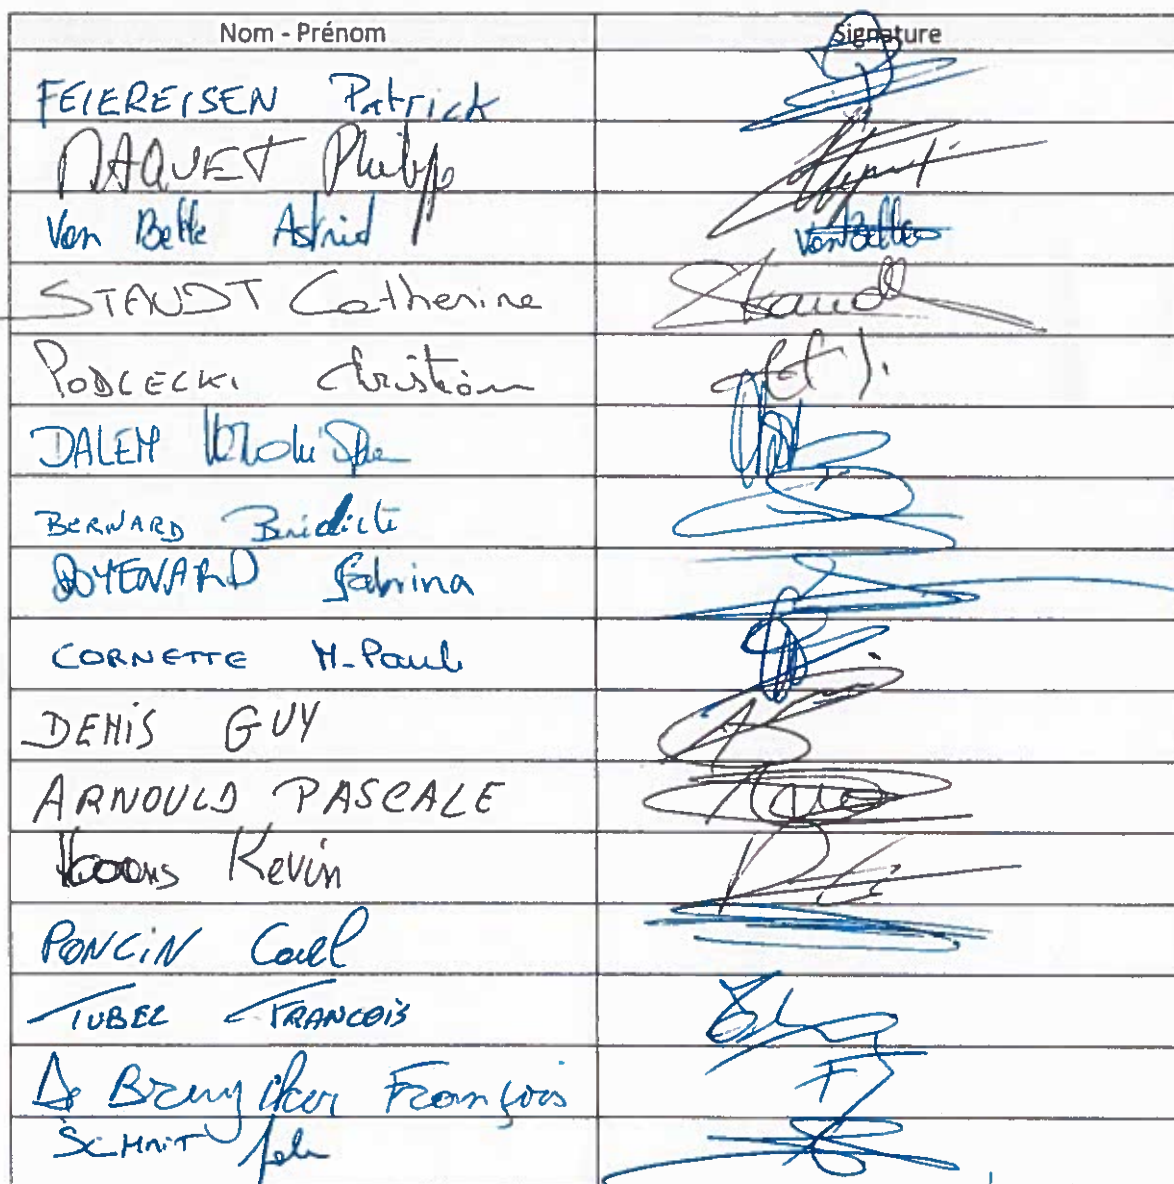 Nom - Prénom Signature
FEIEREISEN Patrick
MAQUET Philippe
Van Belle Astrid VanBelle
STAUDT Catherine Staudt
PODLECKI Christian
DALEM Véronique
BERNARD Bénédicte
Sabrina
CORNETTE M-Paule
DEMIS GUY
ARNOULD PASCALE
Kevin
PONCIN Carl
TUBEZ FRANCOIS
De François
SCHMIT